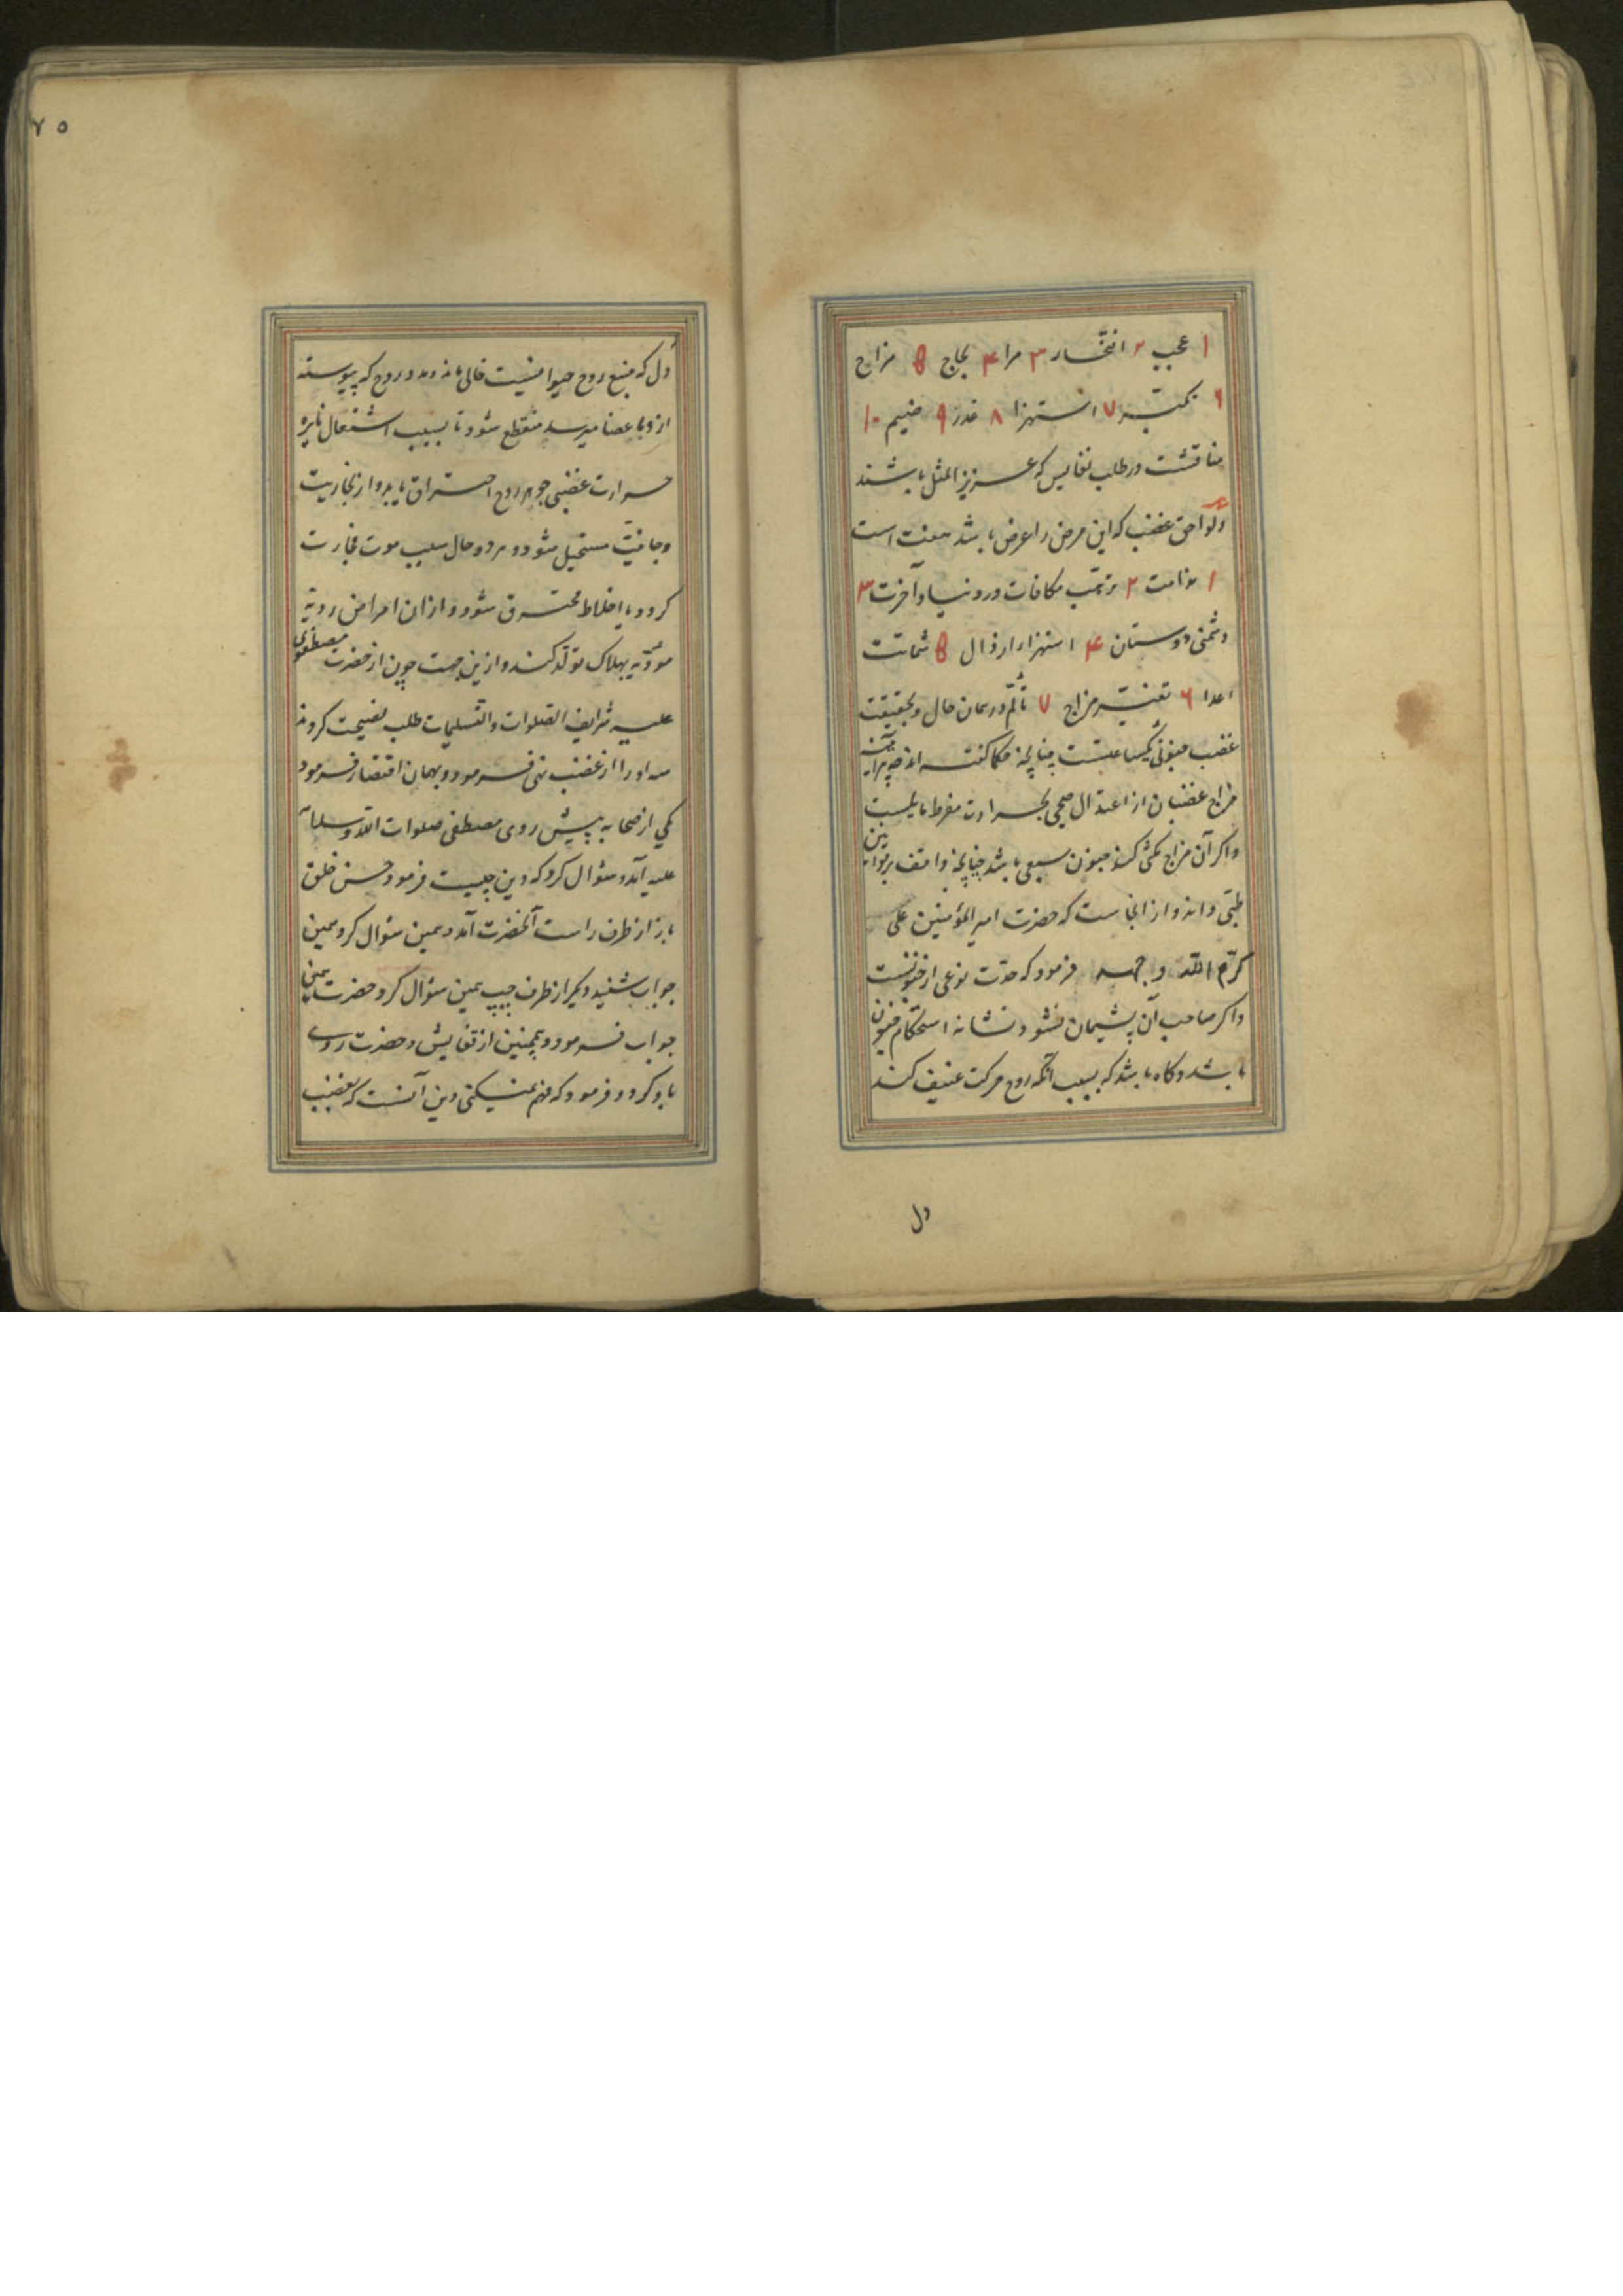 ۱ عجب ۲ افتخار ۳ مرا ۴ لجاج ۵ مزاح
۶ تکبّر ۷ استهزا ۸ غدر ۹ ضیم ۱۰
مناقشت در طلب نفایس که عزیز المثل باشند
و لواحق غضب که این مرض را عرض باشد هفت است
۱ ندامت ۲ ترتّب مکافات در دنیا و آخرت ۳
دشمنی دوستان ۴ استهزا اراذال ۵ شماتت
اعدا ۶ تغیّر مزاج ۷ تألّم در همان حال و بحقیقت
غضب جنون یکساعتست چنانچه حکما گفته‌اند چه هر آینه
مزاج غضبان از اعتدال صحی بحرارت مفرط مایلست
و اگر آن مزاج مکثی کند جنون سبعی باشد چنانچه واقف بر قوانین
طبّی داند و از انجاست که حضرت امیر المؤمنین علی
کرّم الله وجهه فرمود که حدّت نوعی از جنونست
و اگر صاحب آن پشیمان نشود نشانه استحکام جنون
باشد و گاه باشد که بسبب آنکه روح حرکت عنیف کند
دل
۷۵
دل که منبع روح حیوانیست خالی ماند و مدد روح که پیوسته
ازو باعضا میرسد منقطع شود تا بسبب اشتعال نایره
حرارت غضبی جوهر روح احتراق یابد و از بخاریت
و جانیّت مستحیل شود و هر دو حال سبب موت فجارت
گردد یا اخلاط محترق شود و از ان امراض ردیّه
مؤدّیه بهلاک تولّد کنند و ازین جهت چون از حضرت مصطفوی
علیه شرایف الصلوات والتسلیمات طلب نصیحت کردند
سه او را از غضب نهی فرمود و بهمان اقتصار فرمود
یکی از صحابه پیش روی مصطفی صلوات الله و سلامه
علیه آمد و سئوال کرد که دین چیست فرمود حسن خلق
باز از طرف راست آنحضرت آمد و همین سئوال کرد همین
جواب شنید دیگر از طرف چپ همین سئوال کرد حضرت همین
جواب فرمود و همچنین از قفایش و حضرت روی
باو کرد و فرمود که فهم نمیکنی دین آنست که بغضب